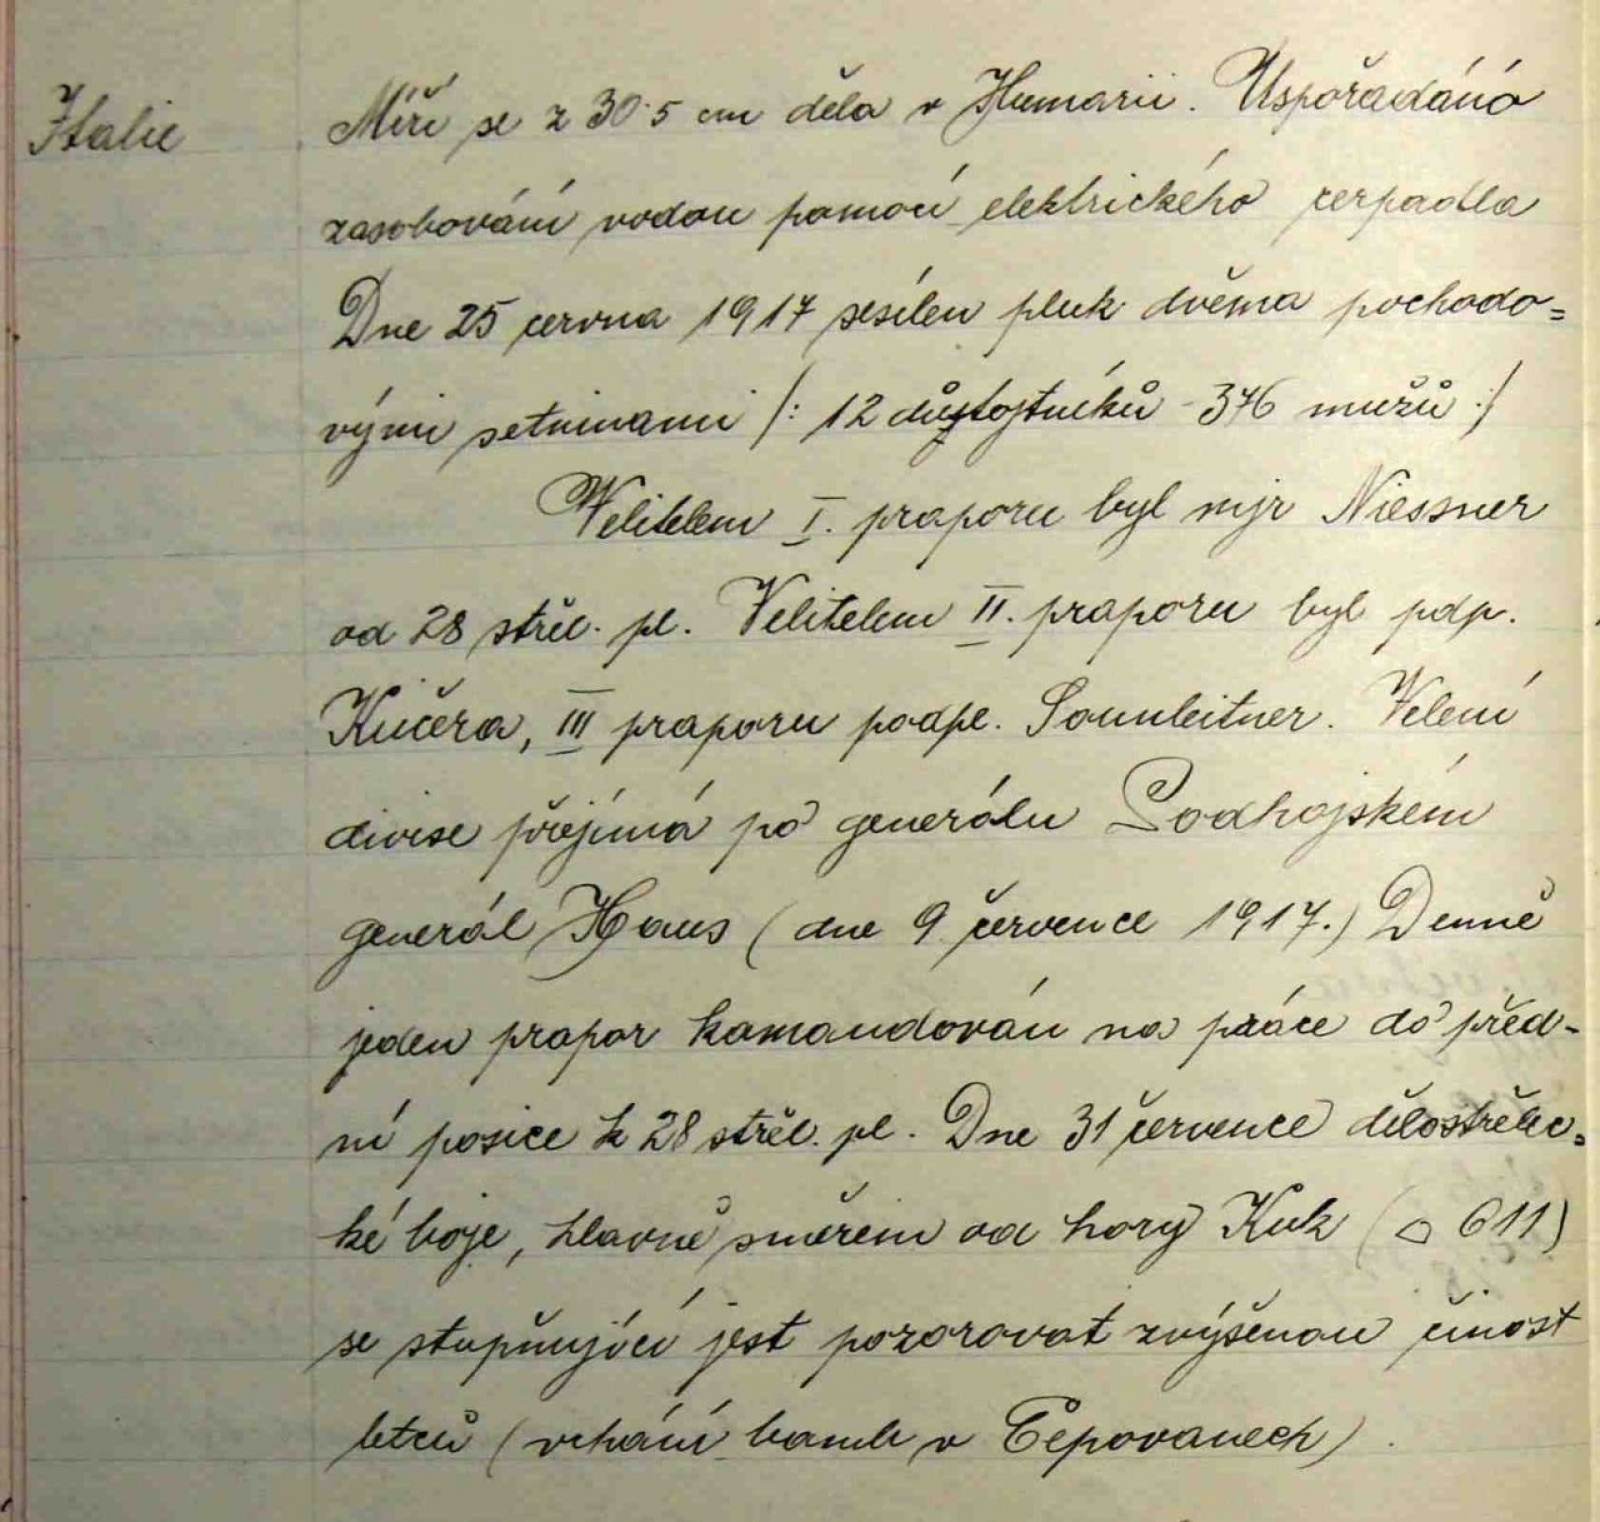 Italie
Míří se z 30·5 cm děla v Humarii. Uspořádáno
zasobování vodou pomocí elektrického čerpadla
Dne 25 června 1917 sesílen pluk dvěma pochodo=
vými setninami /: 12 důstojníků - 346 mužů :/
Velitelem I. praporu byl mjr Niessner
od 28 střel. pl. Velitelem II. praporu byl pdp.
Kučera, III praporu podpl. Sonnleitner. Velení
divise přejímá po generálu Podhojském
generál Haus (dne 9 července 1917.) Denně
jeden prapor komandován na práce do před-
ní posice k 28 střel. pl. Dne 31 července dělostřelec=
ké boje, hlavně směrem od hory Kuk (△ 611)
se stupňující jest pozorovat zvýšenou činost
letců (vrhání bomb v Čepovanech).